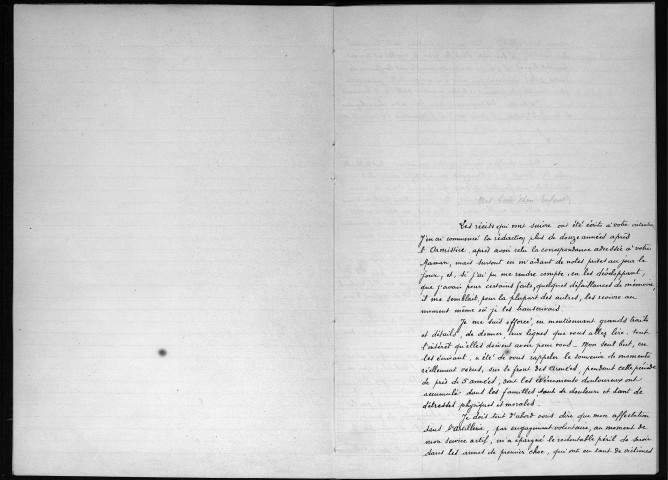 Mes bien chers Enfants,
Les récits qui vont suivre ont été écrits à votre intention
J'en ai commencé la rédaction, plus de douze années après
l'Armistice, après avoir relu la correspondance adressée à votre
Maman, mais surtout en m'aidant de notes prises au jour le
jour, et, si j'ai pu me rendre compte, en les développant,
que j'avais pour certains faits, quelques défaillances de mémoire,
il me semblait, pour la plupart des autres, les revivre au
moment même où je les transcrivais.
Je me suis efforcé, en mentionnant grands traits
et détails, de donner aux lignes que vous allez lire, tout
l'intérêt qu'elles doivent avoir pour vous_ Mon seul but, en
les écrivant, a été de vous rappeler le souvenir de moments
réellement vécus, sur le front des Armées, pendant cette période
de près de 5 années, dont les évènements douloureux ont
accumulé dans les familles tant de douleurs et tant de
détresses physiques et morales.
Je dois tout d'abord vous dire que mon affectation
dans l'artillerie, par engagement volontaire, au moment de
mon service actif, m'a épargné le redoutable péril de servir
dans les armes de premier choc, qui ont eu tant de victimes